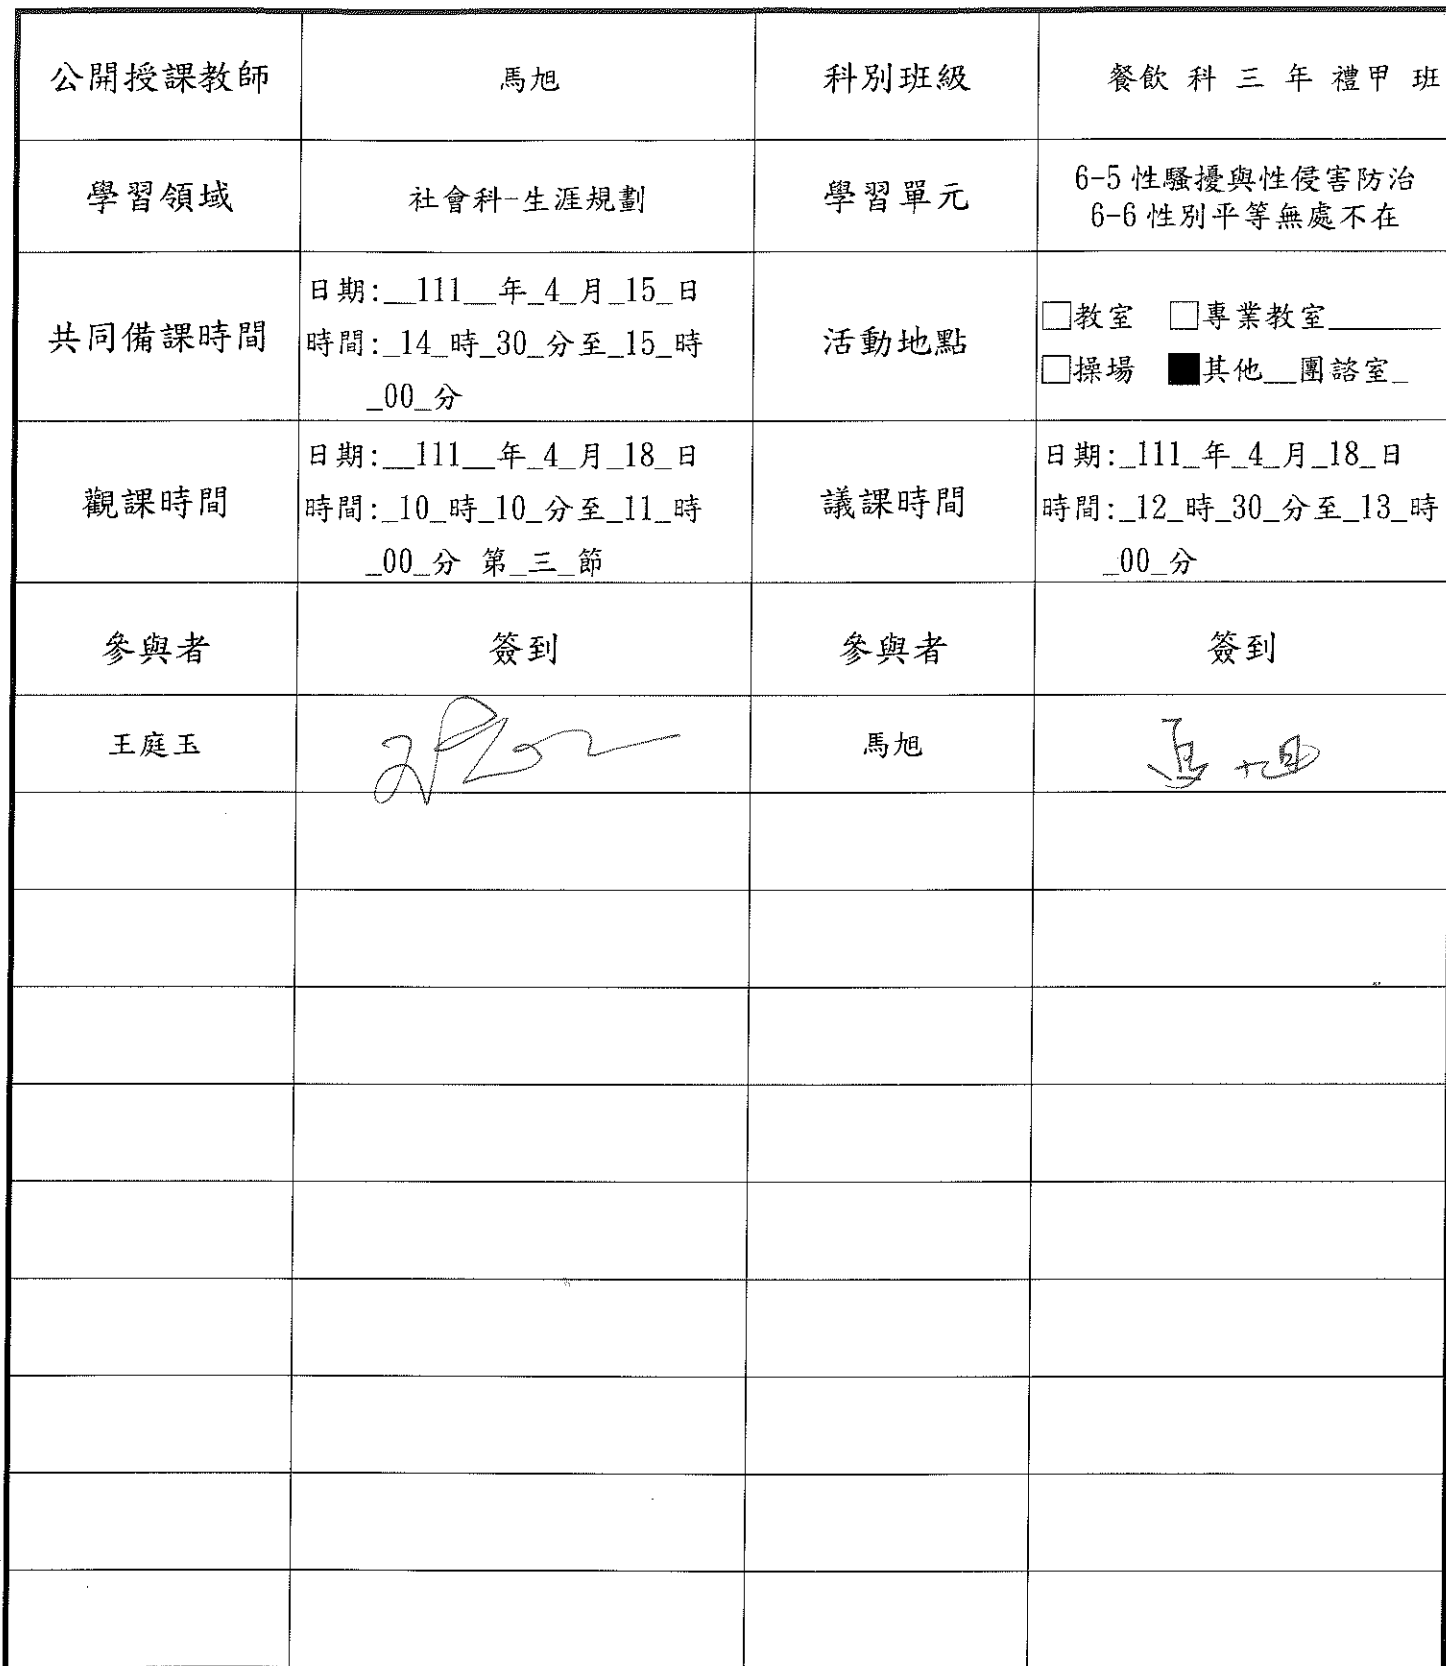 公開授課教師 馬旭 科別班級 餐飲 科 三 年 禮甲 班
學習領域 社會科-生涯規劃 學習單元 6-5 性騷擾與性侵害防治
6-6 性別平等無處不在
共同備課時間 日期:__111__年_4_月_15_日
時間:_14_時_30_分至_15_時
_00_分
活動地點 □教室 □專業教室______
□操場 ■其他__團諮室_
觀課時間 日期:__111__年_4_月_18_日
時間:_10_時_10_分至_11_時
_00_分 第_三_節
議課時間 日期:_111_年_4_月_18_日
時間:_12_時_30_分至_13_時
_00_分
參與者 簽到 參與者 簽到
王庭玉 馬旭 馬旭